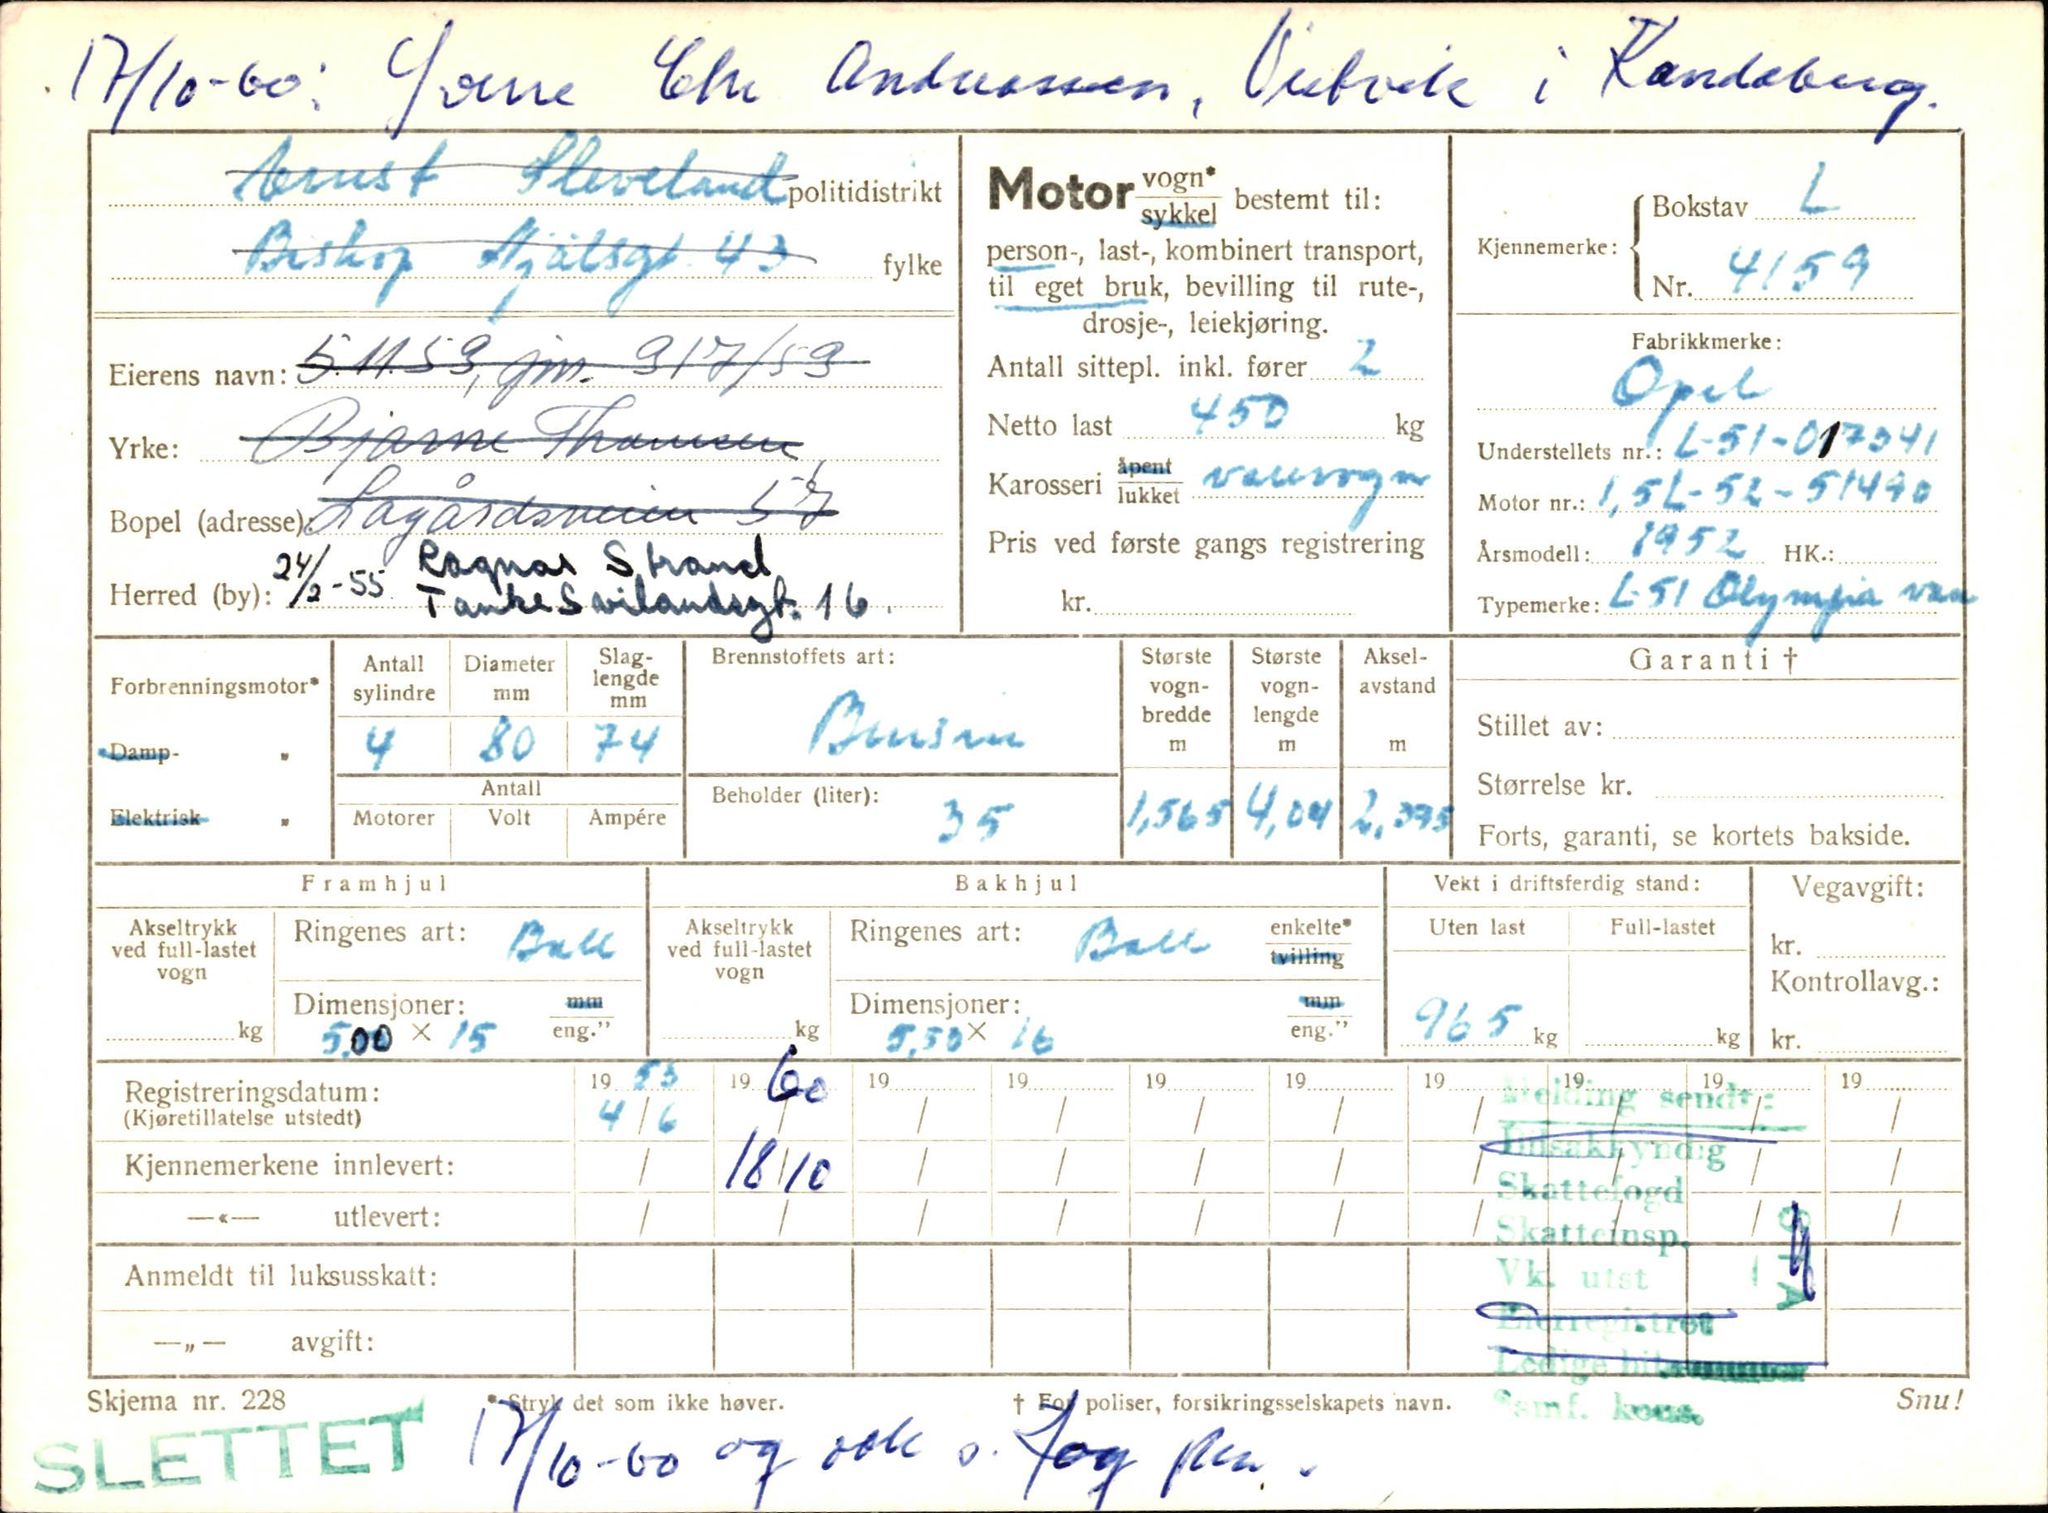 17/10-60: Chr Andreassen, i
Ernst Sleveland politidistrikt
Bishop Njålsgt. 43 fylke
Eierens navn: 5.11.53, jnr. 917/53
Yrke: Bjarne Thomsen
Bopel (adresse): Lagårdsveien 57
Herred (by): 24/2-55 Ragnar Strand
Tanke Svilandsgt. 16.
Motor vogn* sykkel bestemt til:
person-, last-, kombinert transport,
til eget bruk, bevilling til rute-,
drosje-, leiekjøring.
Antall sittepl. inkl. fører 2
Netto last 450 kg
Karosseri åpent lukket varevogn
Pris ved første gangs registrering
kr.
Kjennemerke: Bokstav L
Nr. 4159
Fabrikkmerke:
Opel
Understellets nr.: L-51-017341
Motor nr.: 1,5L-52-51490
Årsmodell: 1952 HK.:
Typemerke: L-51 Olympia van
Forbrenningsmotor*
Damp- „
Elektrisk „
Antall sylindre 4
Diameter mm 80
Slag-lengde mm 74
Antall
Motorer Volt Ampére
Brennstoffets art:
Bensin
Beholder (liter): 35
Største vogn-bredde m 1,565
Største vogn-lengde m 4,04
Aksel-avstand m 2,395
Garanti †
Stillet av:
Størrelse kr.
Forts, garanti, se kortets bakside.
Framhjul
Akseltrykk ved full-lastet vogn
kg
Ringenes art: Ball
Dimensjoner: mm eng."
5,00 × 15
Bakhjul
Akseltrykk ved full-lastet vogn
kg
Ringenes art: Ball enkelte* tvilling
Dimensjoner: mm eng."
5,50 × 16
Vekt i driftsferdig stand:
Uten last Full-lastet
965 kg kg
Vegavgift:
kr.
Kontrollavg.:
kr.
Registreringsdatum: 19 53 19 60 19 19 19 19 19 19 19 19
(Kjøretillatelse utstedt) 4/6 / / / / / / / / /
Kjennemerkene innlevert: / 18/10 / / / / / / / /
—«— utlevert: / / / / / / / / / /
Anmeldt til luksusskatt:
—„— avgift:
Melding sendt:
Innsakkyndig
Skattefogd
Skatteinsp.
Vk. utst
Eierregistret
Ledige bilnummer
Samf. kons.
Skjema nr. 228 * Stryk det som ikke høver. † For poliser, forsikringsselskapets navn. Snu!
SLETTET
17/10-60 og